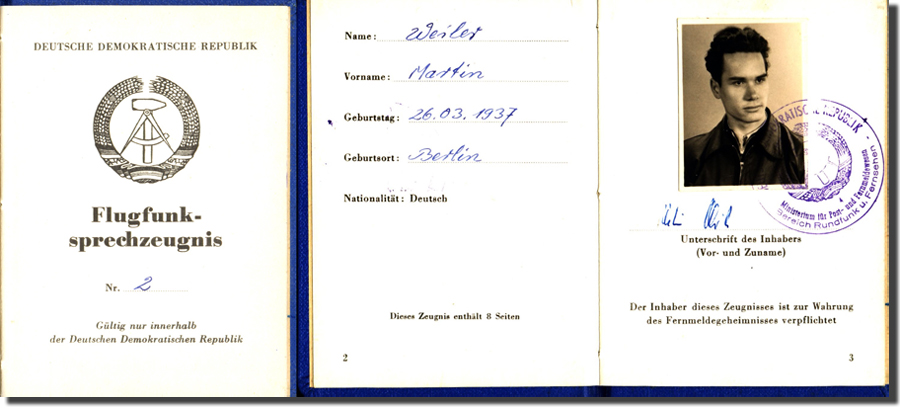 DEUTSCHE DEMOKRATISCHE REPUBLIK
Flugfunk-
sprechzeugnis
Nr. 2
Gültig nur innerhalb
der Deutschen Demokratischen Republik
Name: Weiler
Vorname: Martin
Geburtstag: 26.03.1937
Geburtsort: Berlin
Nationalität: Deutsch
Dieses Zeugnis enthält 8 Seiten
2
RATISCHE REPUBLIK
Ministerium für Post- und Fernmeldewesen
Bereich Rundfunk u. Fernsehen
Unterschrift des Inhabers
(Vor- und Zuname)
Der Inhaber dieses Zeugnisses ist zur Wahrung
des Fernmeldegeheimnisses verpflichtet
3